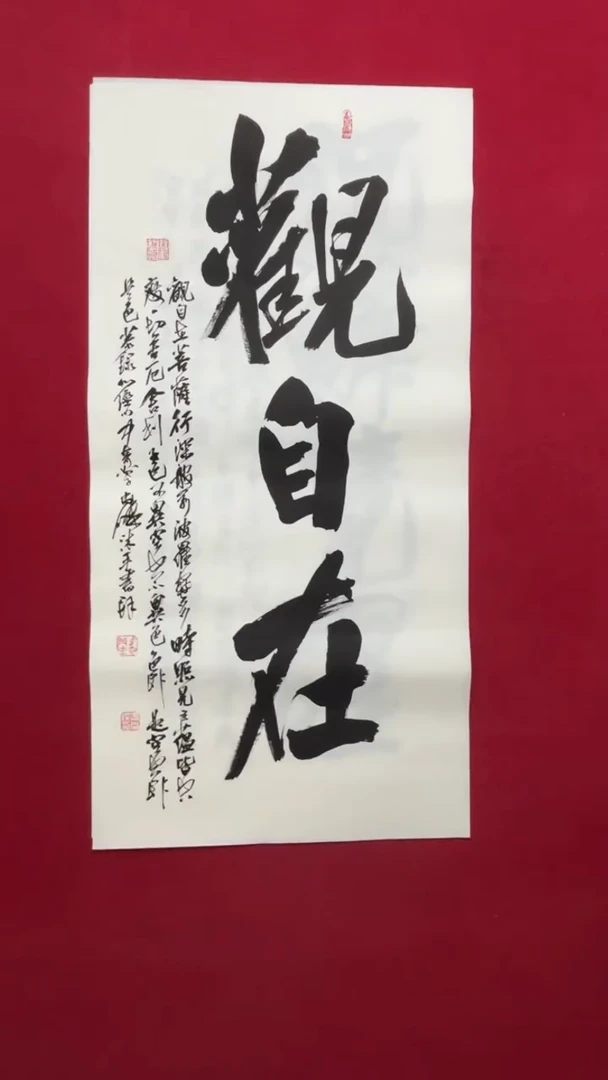 觀自在
觀自在菩薩行深般若波羅蜜多時照見五蘊皆空
度一切苦厄舍利子色不異空空不異色色即是空空即
是色